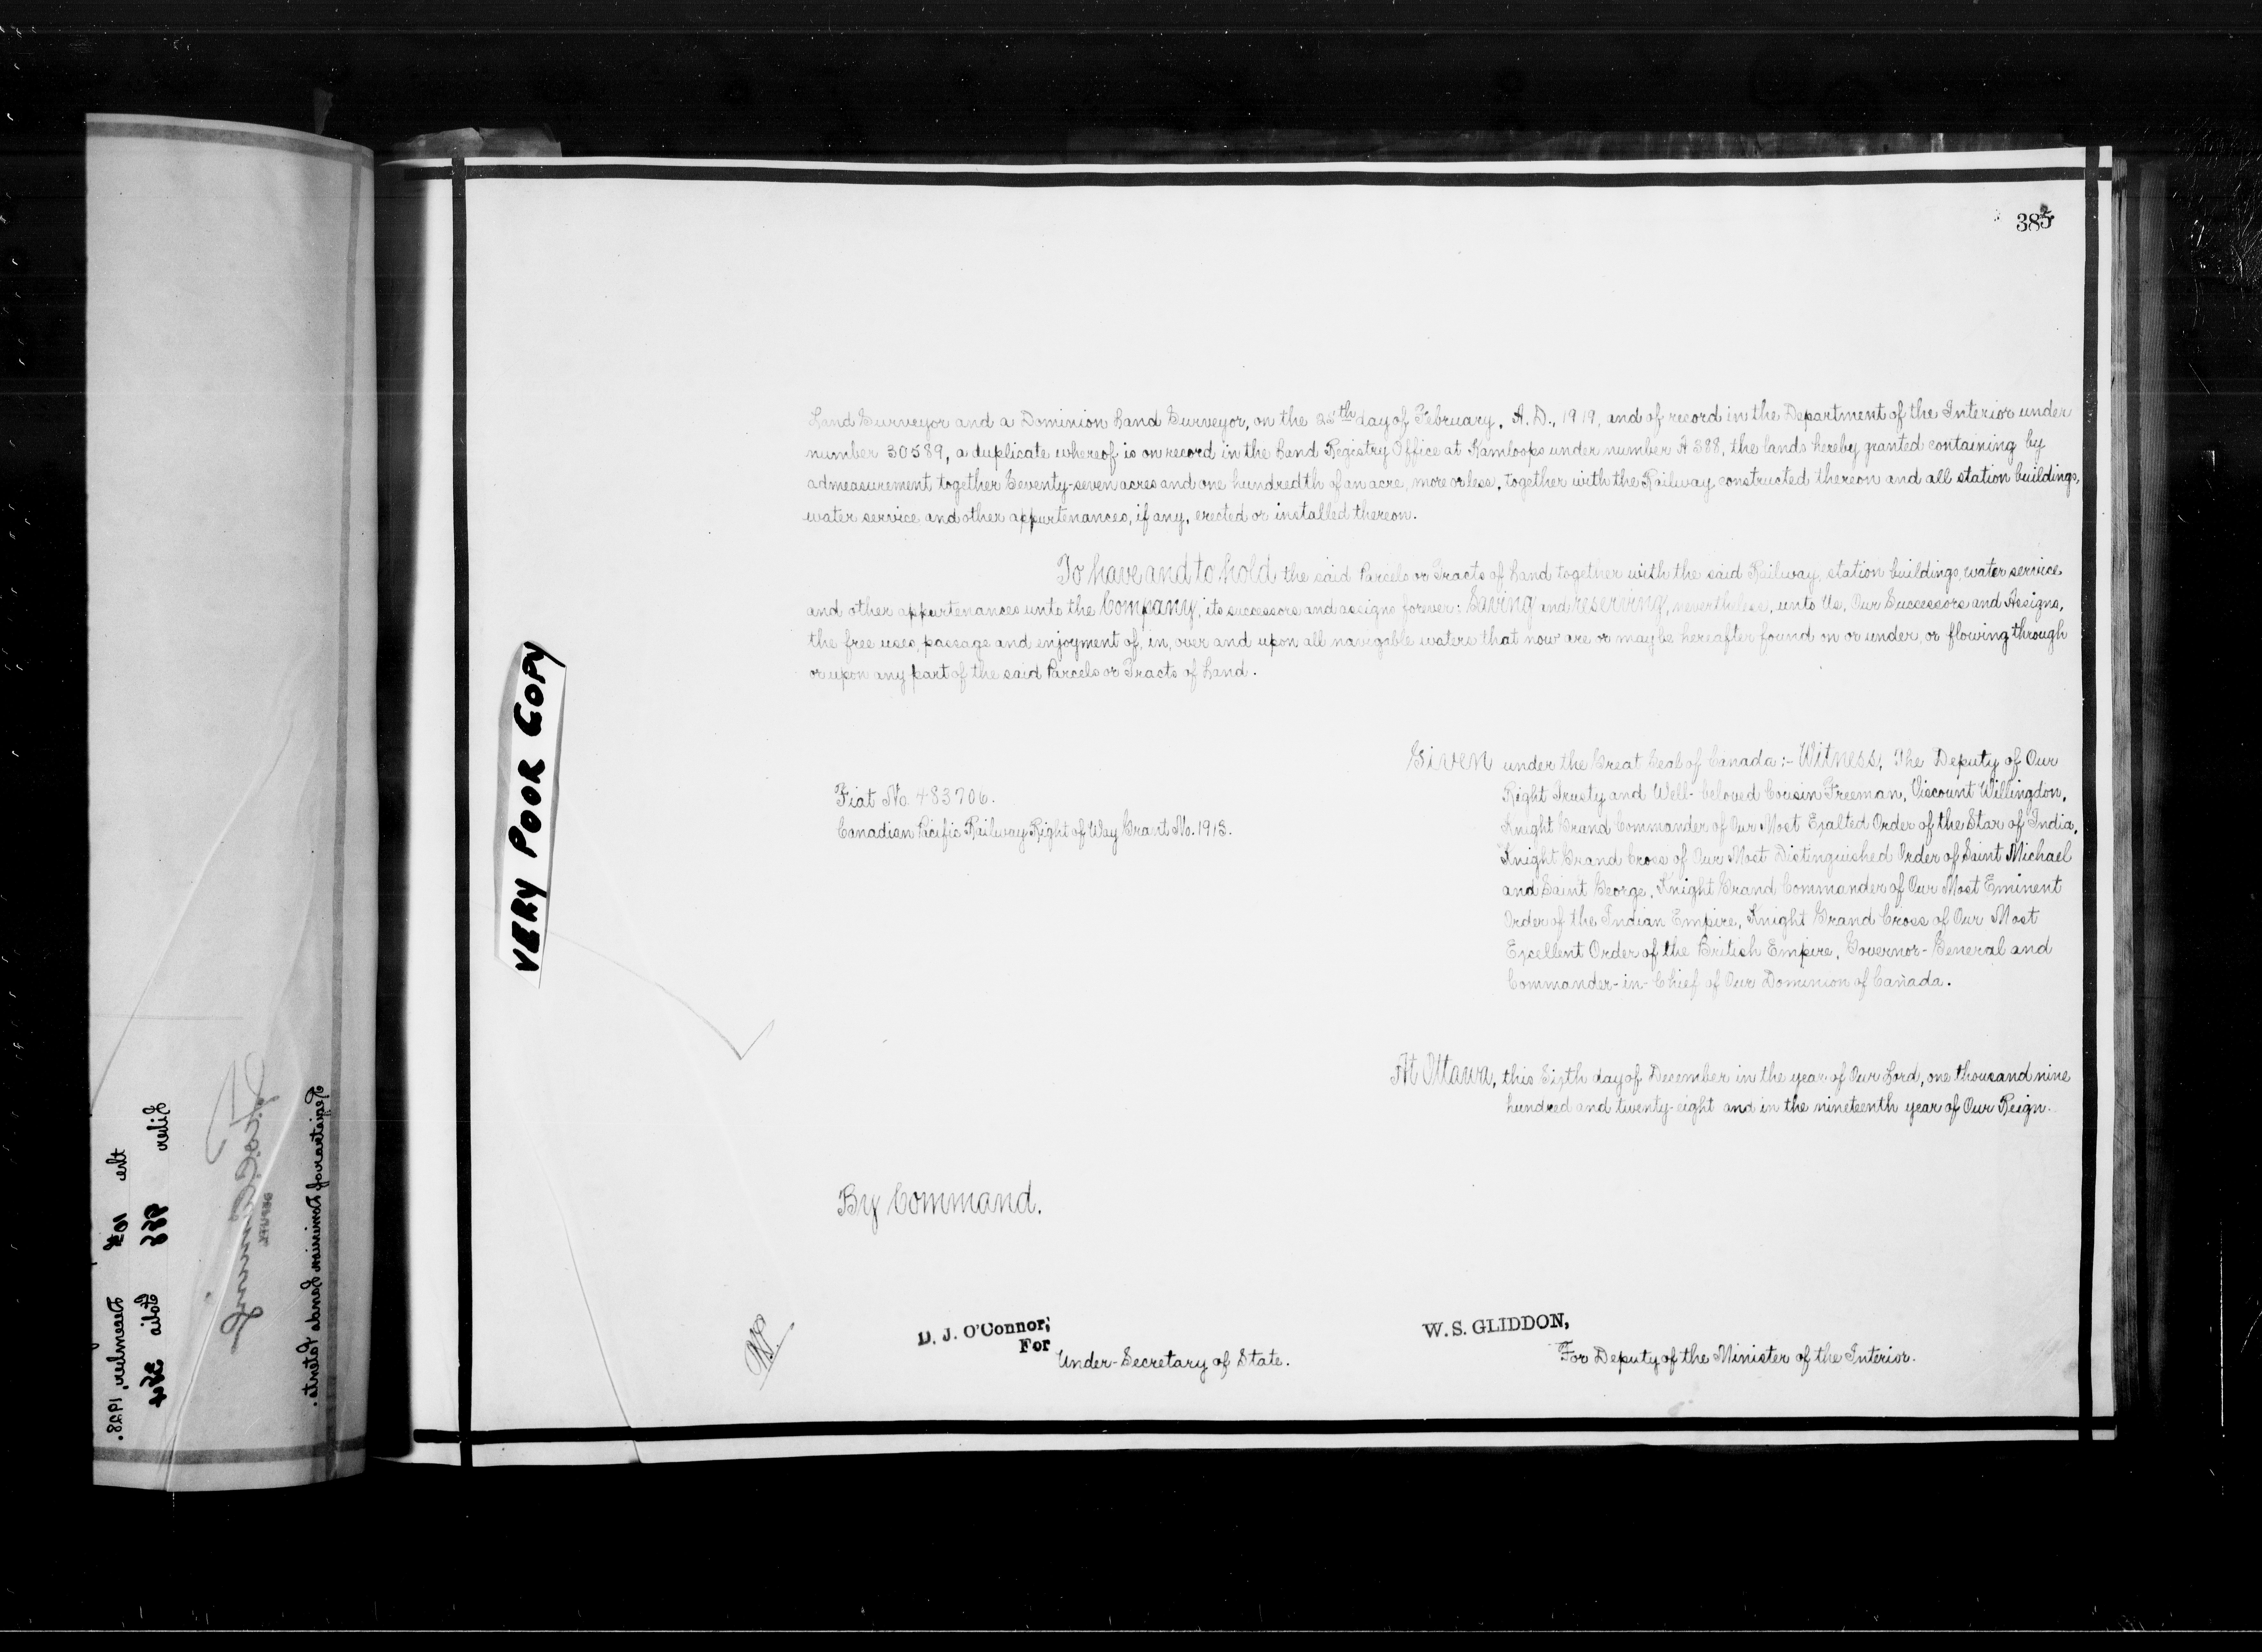 385
Land Surveyor and a Dominion Land Surveyor, on the 25th day of February, A.D., 1919, and of record in the Department of the Interior under
number 30589, a duplicate whereof is on record in the Land Registry Office at Kamloops under number A 388, the lands hereby granted containing by
admeasurement together Seventy-seven acres and one hundredth of an acre, more or less, together with the Railway constructed thereon and all station buildings,
water service and other appurtenances, if any, erected or installed thereon.
To have and to hold the said Parcels or Tracts of Land together with the said Railway, station buildings, water service
and other appurtenances unto the Company, its successors and assigns forever: Saving and reserving, nevertheless, unto Us, Our Successors and Assigns,
the free uses, passage and enjoyment of, in, over and upon all navigable waters that now are or may be hereafter found on or under, or flowing through
or upon any part of the said Parcels or Tracts of Land.
VERY POOR COPY
Fiat No. 483706.
Canadian Pacific Railway Right of Way Grant No. 1913.
Given under the Great Seal of Canada:- Witness, The Deputy of Our
Right Trusty and Well-beloved Cousin Freeman, Viscount Willingdon,
Knight Grand Commander of Our Most Exalted Order of the Star of India,
Knight Grand Cross of Our Most Distinguished Order of Saint Michael
and Saint George, Knight Grand Commander of Our Most Eminent
Order of the Indian Empire, Knight Grand Cross of Our Most
Excellent Order of the British Empire, Governor-General and
Commander-in-Chief of Our Dominion of Canada.
At Ottawa, this Sixth day of December in the year of Our Lord, one thousand nine
hundred and twenty-eight and in the nineteenth year of Our Reign.
By Command.
D. J. O'Connor,
For
Under-Secretary of State.
W. S. GLIDDON,
For Deputy of the Minister of the Interior.
the 10th December, 1928.
Liber 955 Folio 384
DEPUTY
Registrar of Dominion Lands Patents.